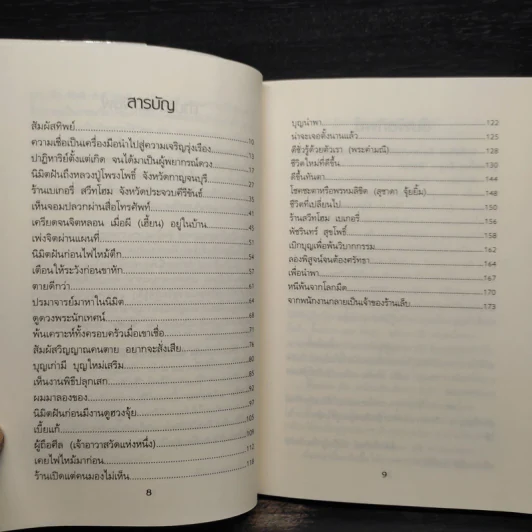 สารบัญ
สัมผัสทิพย์ 10
ความเชื่อเป็นเครื่องมือนำไปสู่ความเจริญรุ่งเรือง 13
ปาฏิหาริย์ตั้งแต่เกิด จนได้มาเป็นผู้พยากรณ์ดวง 17
นิมิตฝันถึงหลวงปู่ไพรวงโพธิ์ จังหวัดกาญจนบุรี
ร้านเบเกอรี่ สวีทโฮม จังหวัดประจวบคีรีขันธ์ 31
เห็นจอมปลวกผ่านสื่อโทรศัพท์ 41
เครียดจนจิตหลอน เมื่อผี (เฮี้ยน) อยู่ในบ้าน 45
เพ่งจิตผ่านแผนที่ 51
นิมิตฝันก่อนไฟไหม้ตึก 54
เตือนให้ระวังก่อนขาหัก 57
ตายดีกว่า 61
ปรมาจารย์มาหาในนิมิต 64
ดูดวงพระนักเทศน์ 68
พ้นเคราะห์ทั้งครอบครัวเมื่อเขาเชื่อ 71
สัมผัสวิญญาณคนตาย อยากจะสั่งเสีย 76
บุญเก่ามี บุญใหม่เสริม 80
เห็นงานพิธีปลุกเสก 86
ผมมาลองของ 92
นิมิตฝันก่อนมีงานดูฮวงจุ้ย 97
เบี้ยแก้ 105
ผู้ถือศีล (เจ้าอาวาสวัดแห่งหนึ่ง) 109
เคยไฟไหม้มาก่อน 112
ร้านเปิดแต่คนมองไม่เห็น 118
8
บุญนำพา 122
น่าจะเจอตั้งนานแล้ว 125
ดีชั่วรู้ด้วยตัวเรา (พระคำมณี) 128
ชีวิตใหม่ที่ดีขึ้น 130
ดีขึ้นทันตา 144
โชคชะตาหรือพรหมลิขิต (สุชาดา จุ้ยยิ้ม) 148
ชีวิตที่เปลี่ยนไป 150
ร้านสวีทโฮม เบเกอรี่ 156
พัชรินทร์ สุขโพธิ์ 158
เบิกบุญเพื่อพ้นวิบากกรรม 162
ลองพิสูจน์จนต้องศรัทธา 164
เพื่อนำพา 167
หนีพ้นจากโลกมืด 170
จากพนักงานกลายเป็นเจ้าของร้านเสีย 173
9